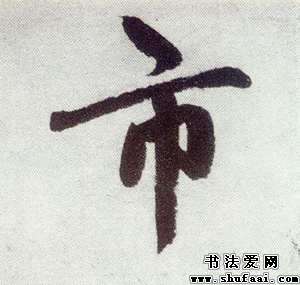 市
书法爱网
www.shufaai.com